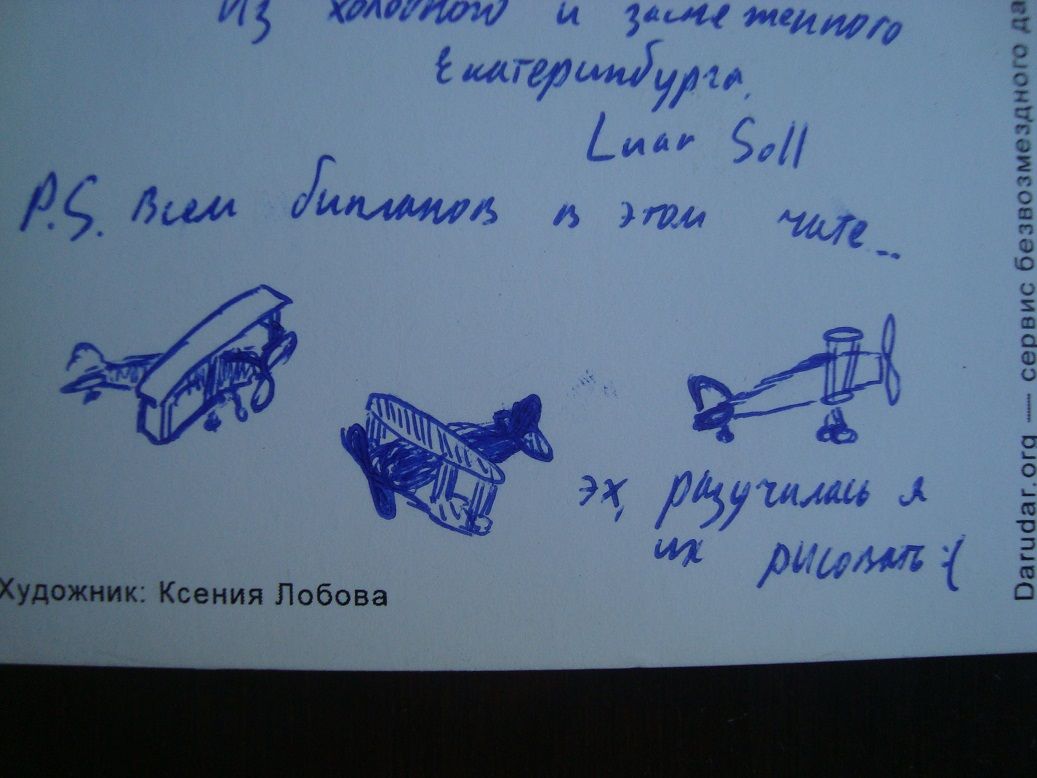 Из холодного и заснеженного
Екатеринбурга,
Luar Soll
P.S. Всем бипланов в этом чате...
эх, разучилась я
их рисовать :(
Художник: Ксения Лобова
Darudar.org — сервис безвозмездного да